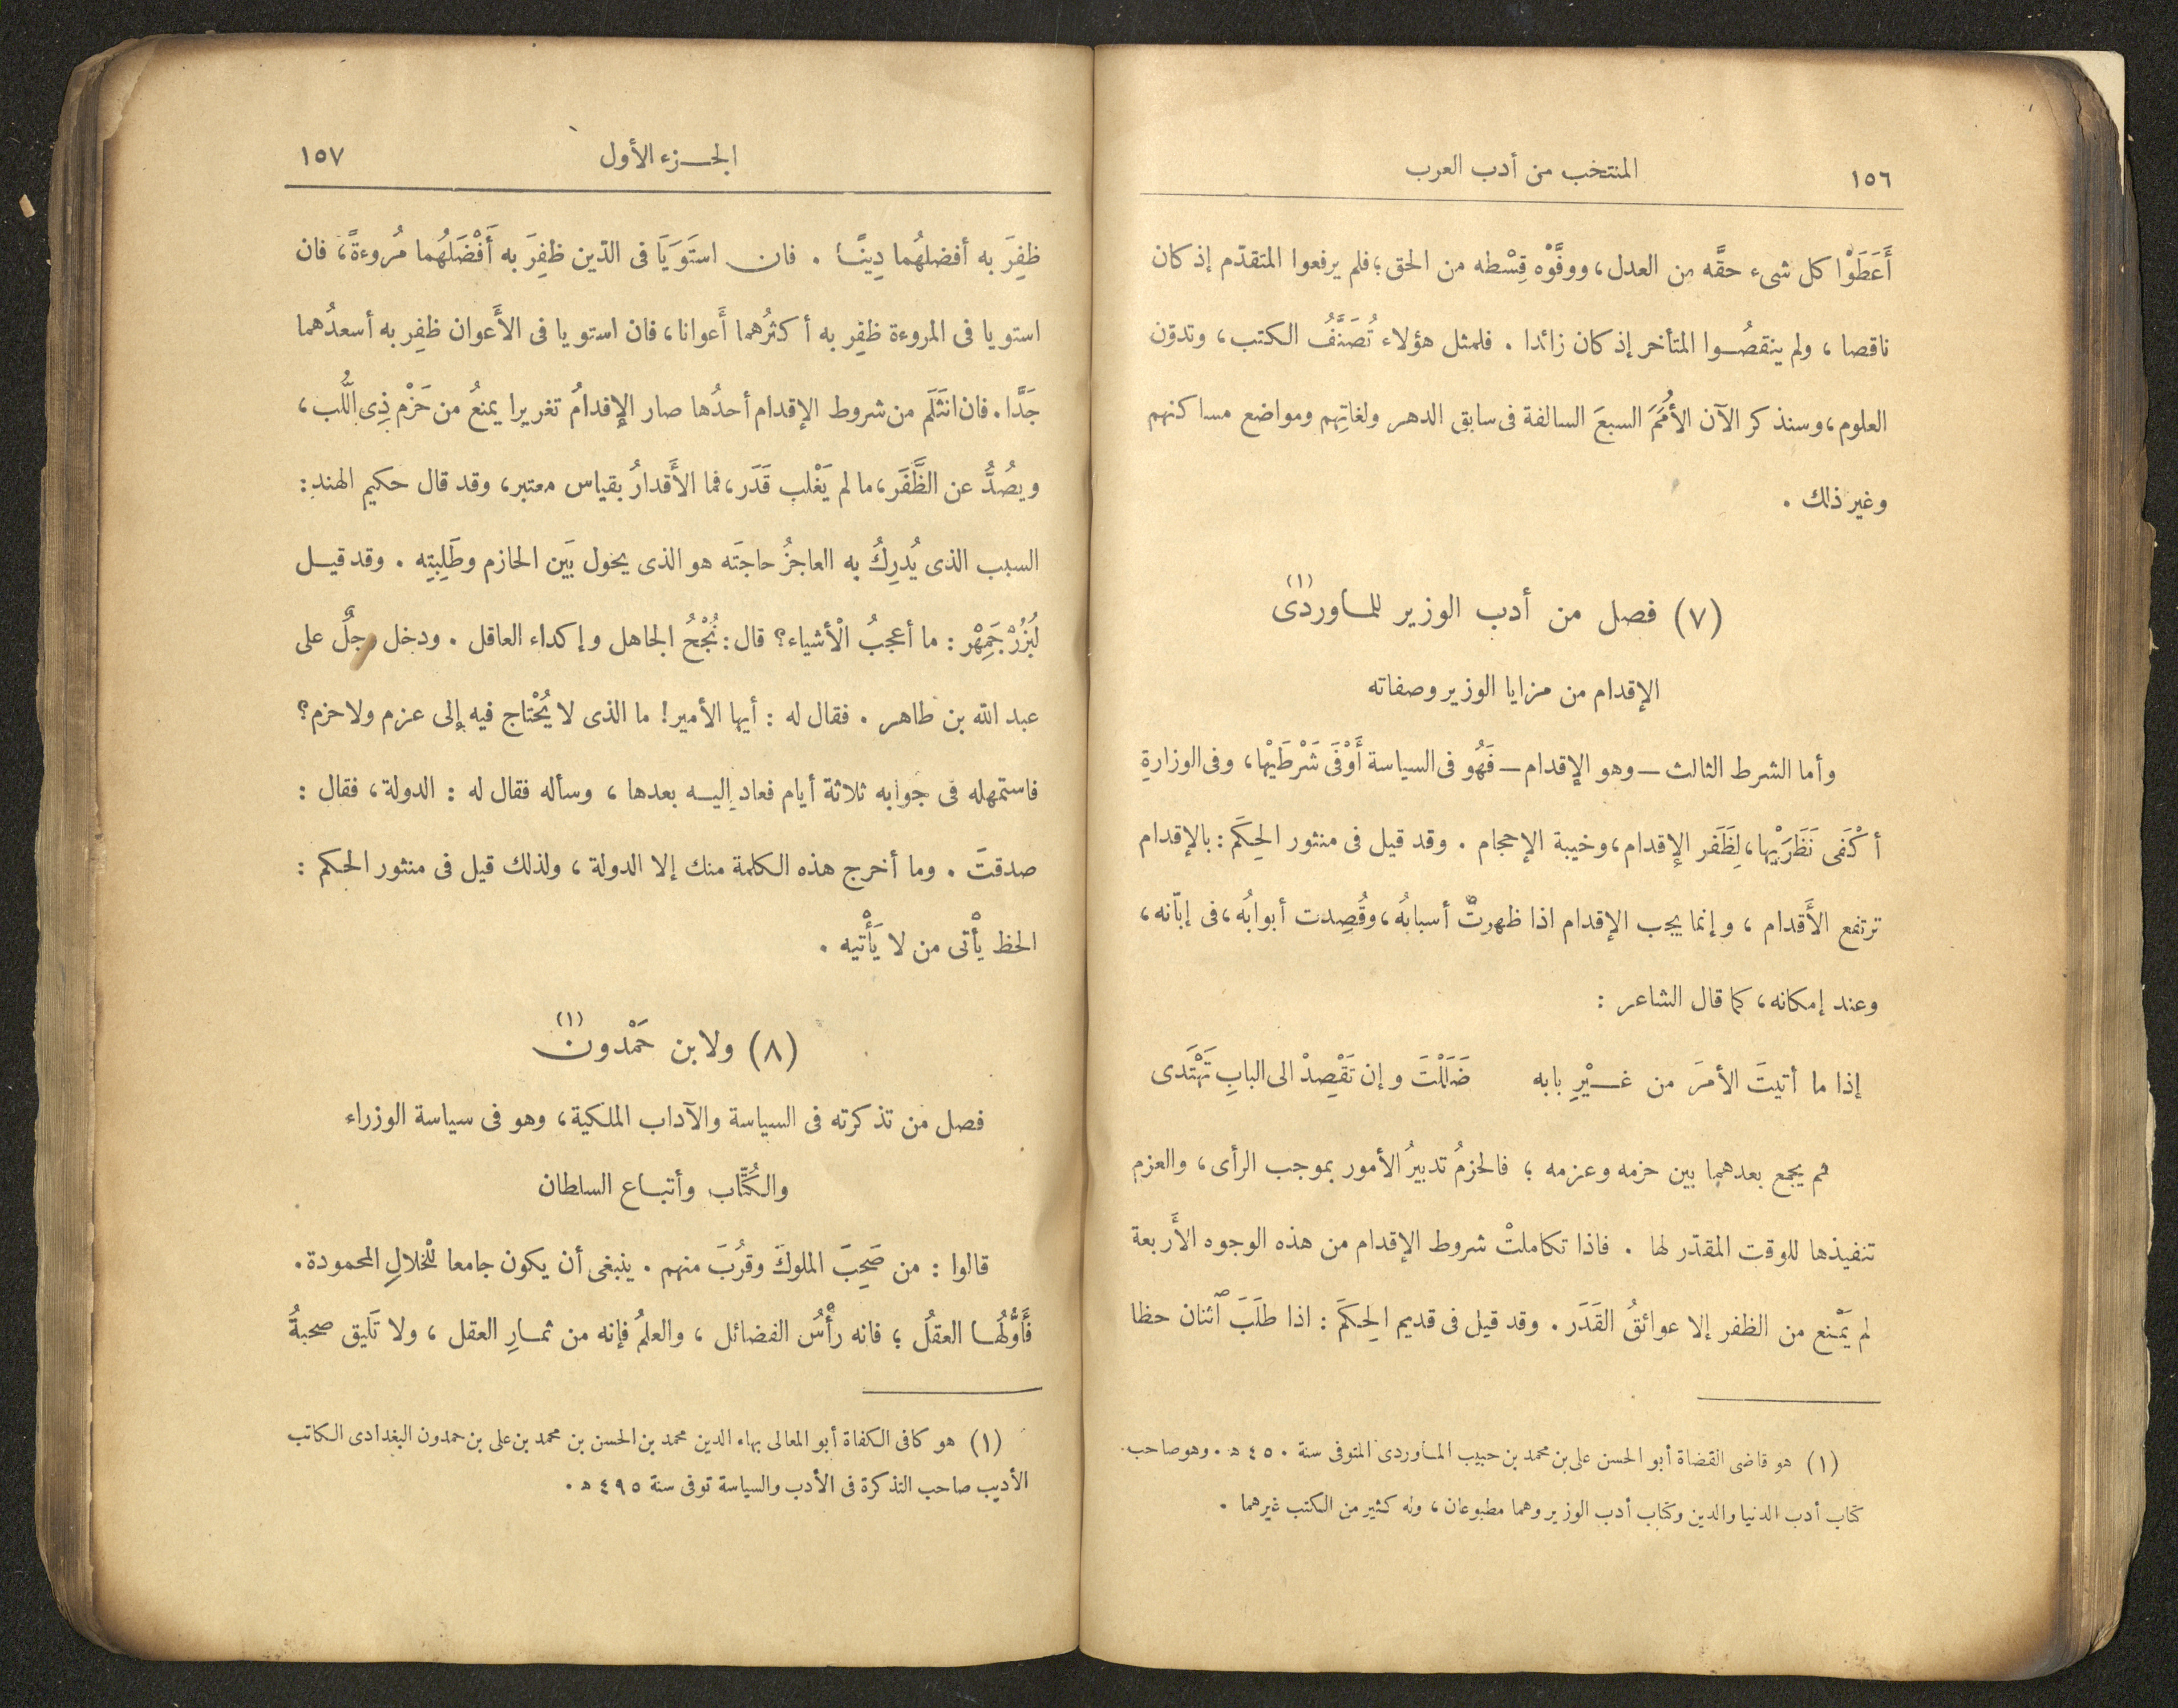 ١٥٦ المنتخب من أدب العرب
أَعَطَوْا كل شىء حقَّه من العدل، ووفَّوْه قِسْطه من الحق؛ فلم يرفعوا المتقدّم إذ كان
ناقصا ، ولم ينقصُوا المتأخر إذ كان زائدا . فلمثل هؤلاء تُصَنَّفُ الكتب، وتدوّن
العلوم، وسنذكر الآن الأُمَمَ السبعَ السالفة فى سابق الدهر ولغاتِهم ومواضع مساكنهم
وغير ذلك .
(٧) فصل من أدب الوزير للماوردى (١)
الإقدام من مزايا الوزير وصفاته
وأما الشرط الثالث — وهو الإقدام — فَهُو فى السياسة أَوْفَى شَرْطَيْها، وفى الوزارةِ
أكْفَى نَظَرَيْها، لِظَفَر الإقدام، وخيبة الإحجام . وقد قيل فى منثور الحِكَم : بالإقدام
ترتفع الأَقدام ، وإنما يجب الإقدام اذا ظهرتْ أسبابُه، وقُصِدت أبوابُه، فى إبّانه،
وعند إمكانه، كما قال الشاعر :
إذا ما أتيتَ الأمرَ من غَيْرِ بابه ضَلَلْتَ وإن تَقْصِدْ الى البابِ تَهْتَدى
ثم يجمع بعدهما بين حزمه وعزمه ؛ فالحزمُ تدبيرُ الأمور بموجب الرأى، والعزم
تنفيذها للوقت المقدّر لها . فاذا تكاملتْ شروط الإقدام من هذه الوجوه الأَربعة
لم يَمْنع من الظفر إلا عوائقُ القَدَر . وقد قيل فى قديم الحِكَمَ : اذا طلَبَ ٱثنان حظا
(١) هو قاضى القضاة أبو الحسن على بن محمد بن حبيب الماوردى المتوفى سنة ٤٥٠ ه . وهو صاحب
كتاب أدب الدنيا والدين وكتاب أدب الوزير وهما مطبوعان، وله كثير من الكتب غيرهما .
الجزء الأول ١٥٧
ظفِرَ به أفضلهُما دِينًا . فان استَوَيَا فى الدّين ظفِرَ به أَفْضَلهُما مُروءةً، فان
استويا فى المروءة ظفِر به أكثرُهما أَعوانا، فان استويا فى الأَعوان ظفِر به أسعدُهما
جَدًّا . فان انثَلَم من شروط الإقدام أحدُها صار الإقدامُ تغريرا يمنعُ من حَزْم ذِى اللُّب،
ويصُدُّ عن الظَّفَر، ما لم يَغْلب قَدَر، فما الأَقدارُ بقياس معتبر، وقد قال حكيم الهند :
السبب الذى يُدرِكُ به العاجزُ حاجتَه هو الذى يحول بَين الحازم وطَلِبتِه . وقد قيل
لُبُزُرْجَمِهْر : ما أعجبُ الْأشياء؟ قال : نُجْحُ الجاهل وإكداء العاقل . ودخل رجلٌ على
عبد الله بن طاهر . فقال له : أيها الأمير! ما الذى لا يُحْتاج فيه إلى عزم ولا حزم؟
فاستمهله فى جوابه ثلاثة أيام فعاد إليه بعدها ، وسأله فقال له : الدولة، فقال :
صدقتَ . وما أخرج هذه الكلمة منك إلا الدولة ، ولذلك قيل فى منثور الحكم :
الحظ يأْتى من لا يَأْتيه .
(٨) ولابن حَمْدون (١)
فصل من تذكرته فى السياسة والآداب الملكية، وهو فى سياسة الوزراء
والكُتَّاب وأتباع السلطان
قالوا : من صَحِبَ الملوكَ وقرُبَ منهم . ينبغى أن يكون جامعا للْخلالِ المحمودة .
فَأَوَّلُها العقلُ ؛ فانه رأْسُ الفضائل ، والعلمُ فإنه من ثمارِ العقل ، ولا تَليق صحبةُ
(١) هو كافى الكفاة أبو المعالى بهاء الدين محمد بن الحسن بن محمد بن على بن حمدون البغدادى الكاتب
الأديب صاحب التذكرة فى الأدب والسياسة توفى سنة ٤٩٥ ه .